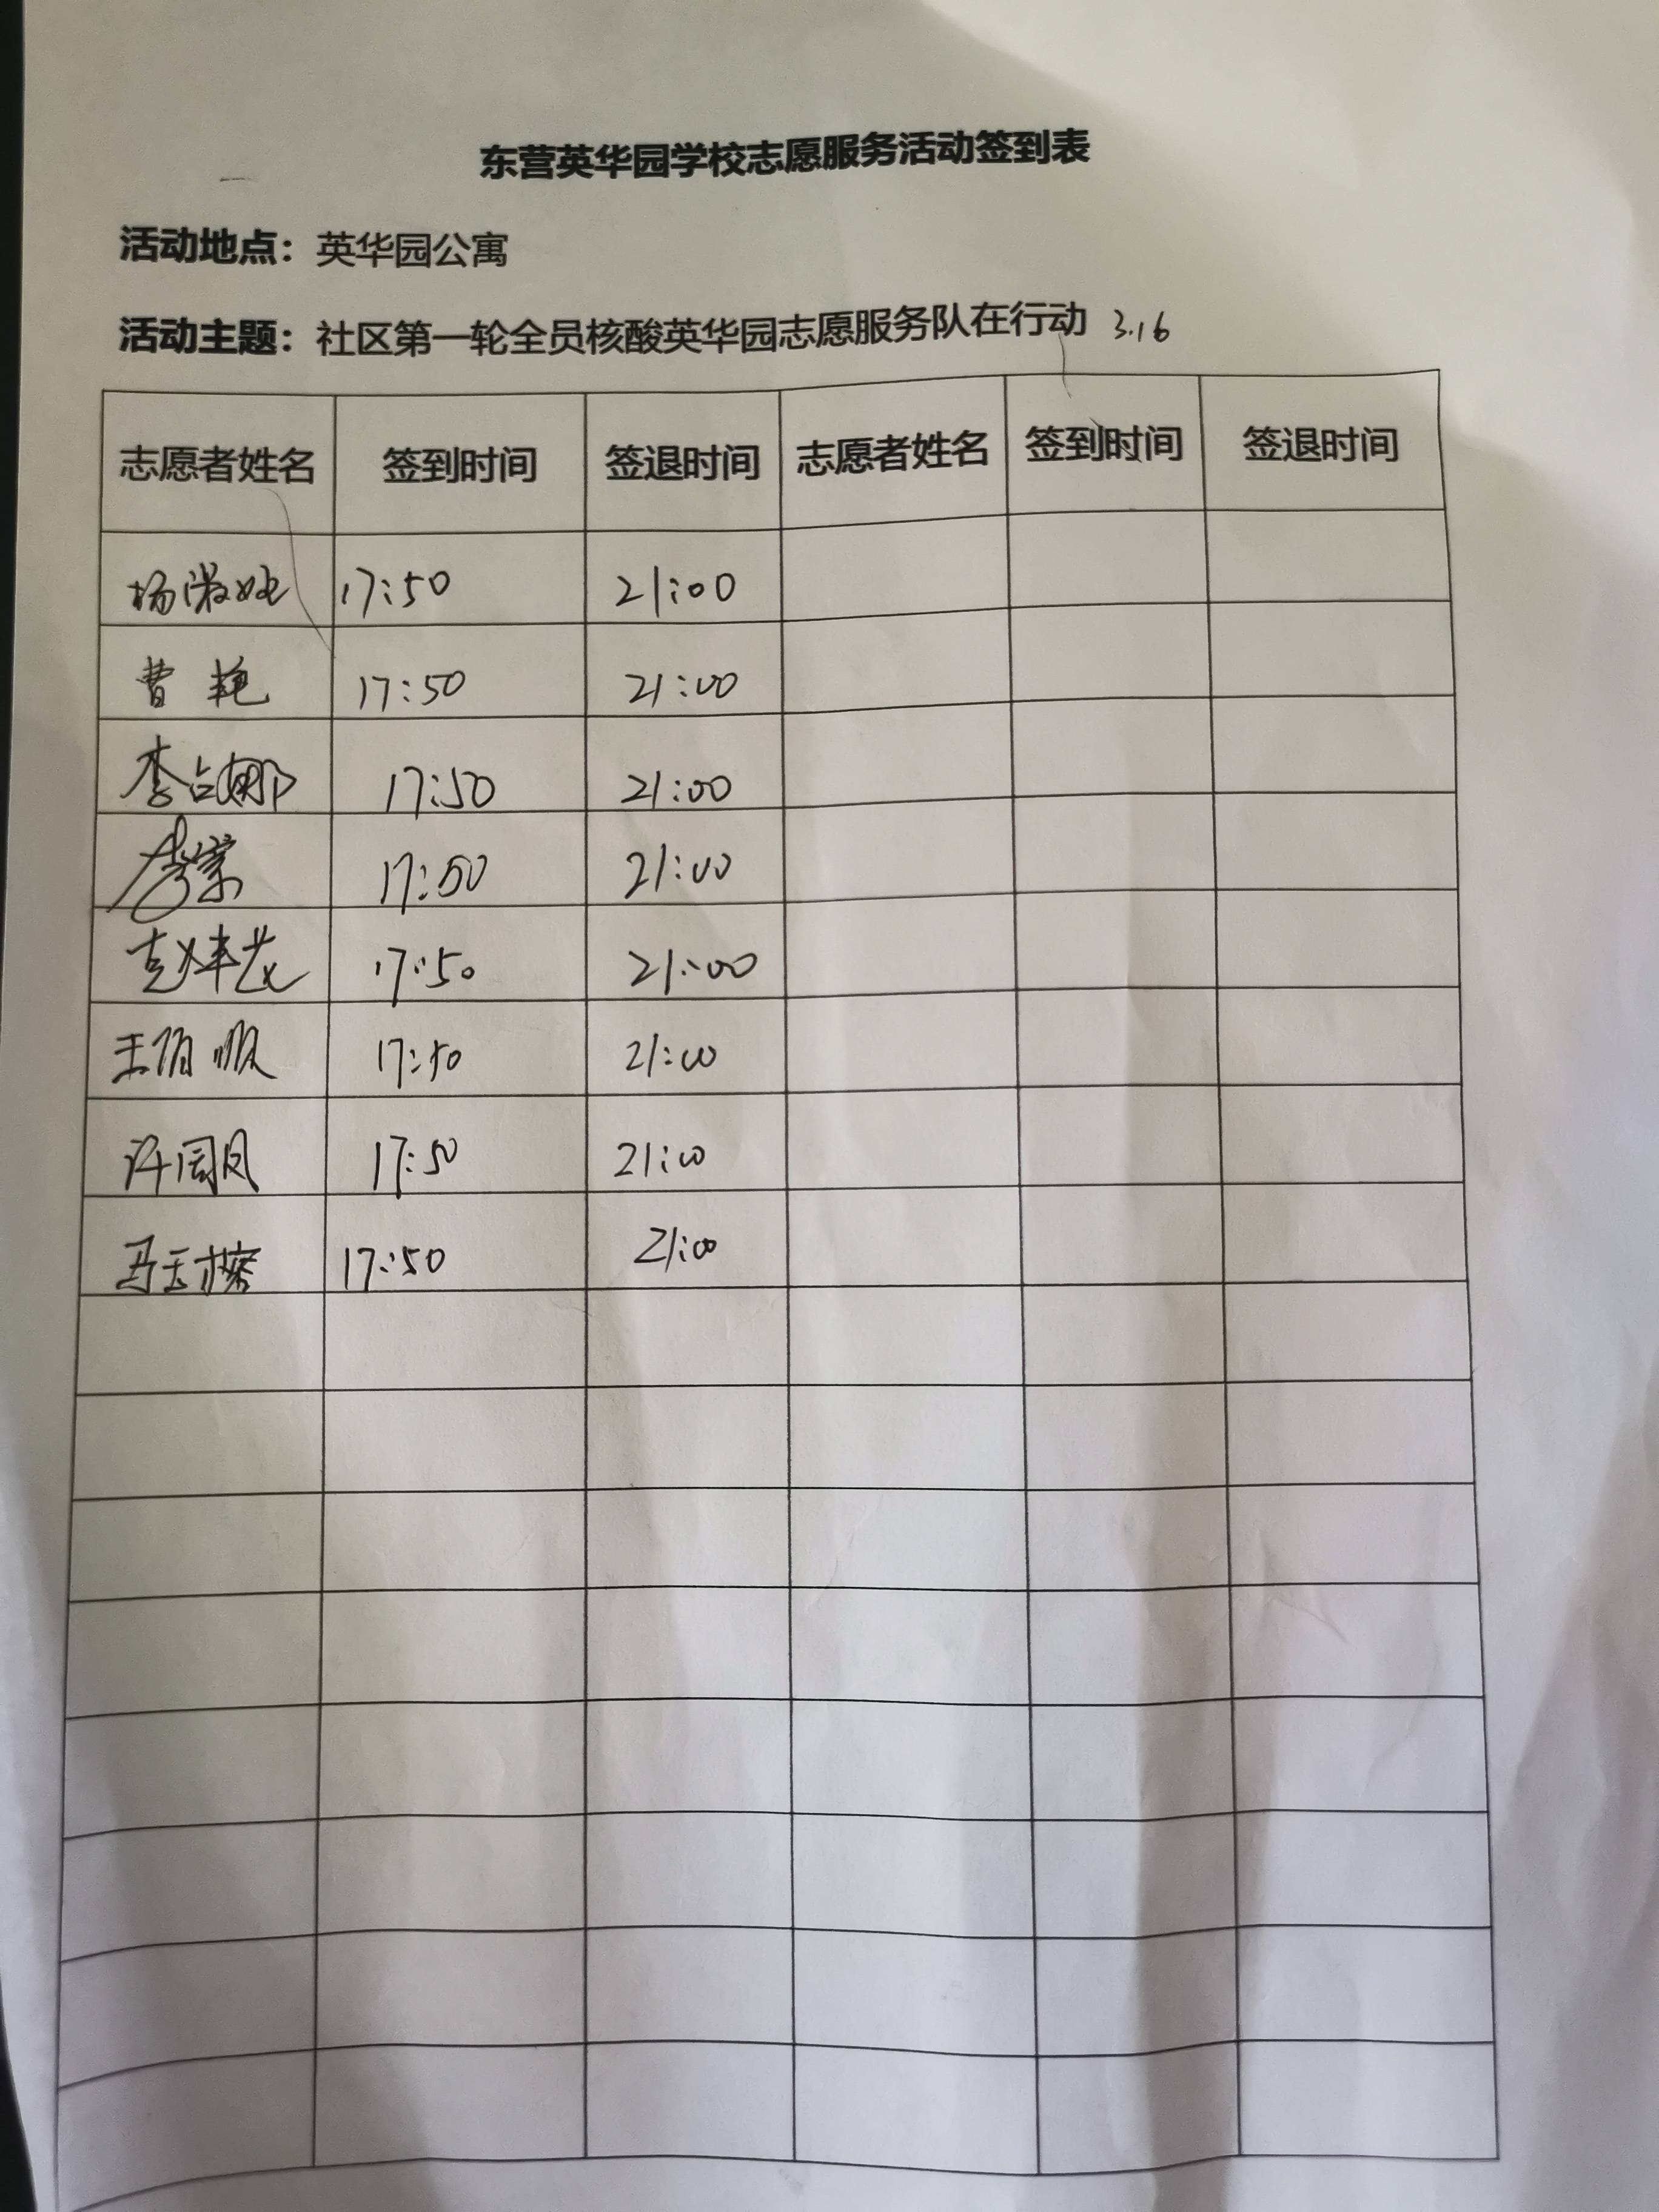 东营英华园学校志愿服务活动签到表
活动地点：英华园公寓
活动主题：社区第一轮全员核酸英华园志愿服务队在行动 3.16
志愿者姓名 签到时间 签退时间 志愿者姓名 签到时间 签退时间
杨淑娥 17:50 21:00
曹艳 17:50 21:00
李占娜 17:50 21:00
17:50 21:00
17:50 21:00
王順 17:50 21:00
许周凤 17:50 21:00
马玉 17:50 21:00